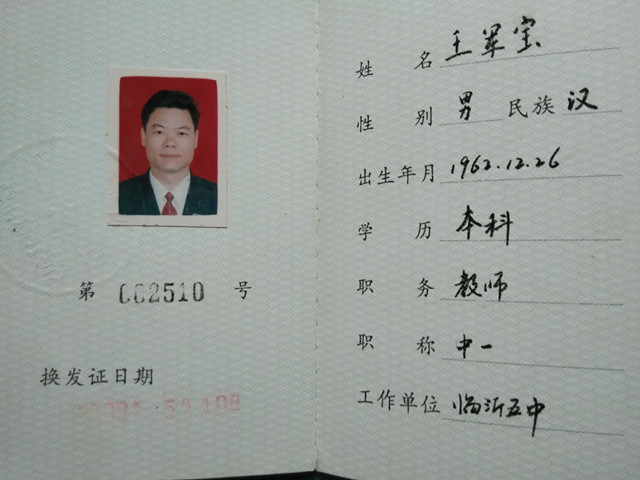 第 002510 号
换发证日期
姓 名 王翠宝
性 别 男 民族 汉
出生年月 1962.12.26
学 历 本科
职 务 教师
职 称 中一
工作单位 临沂五中